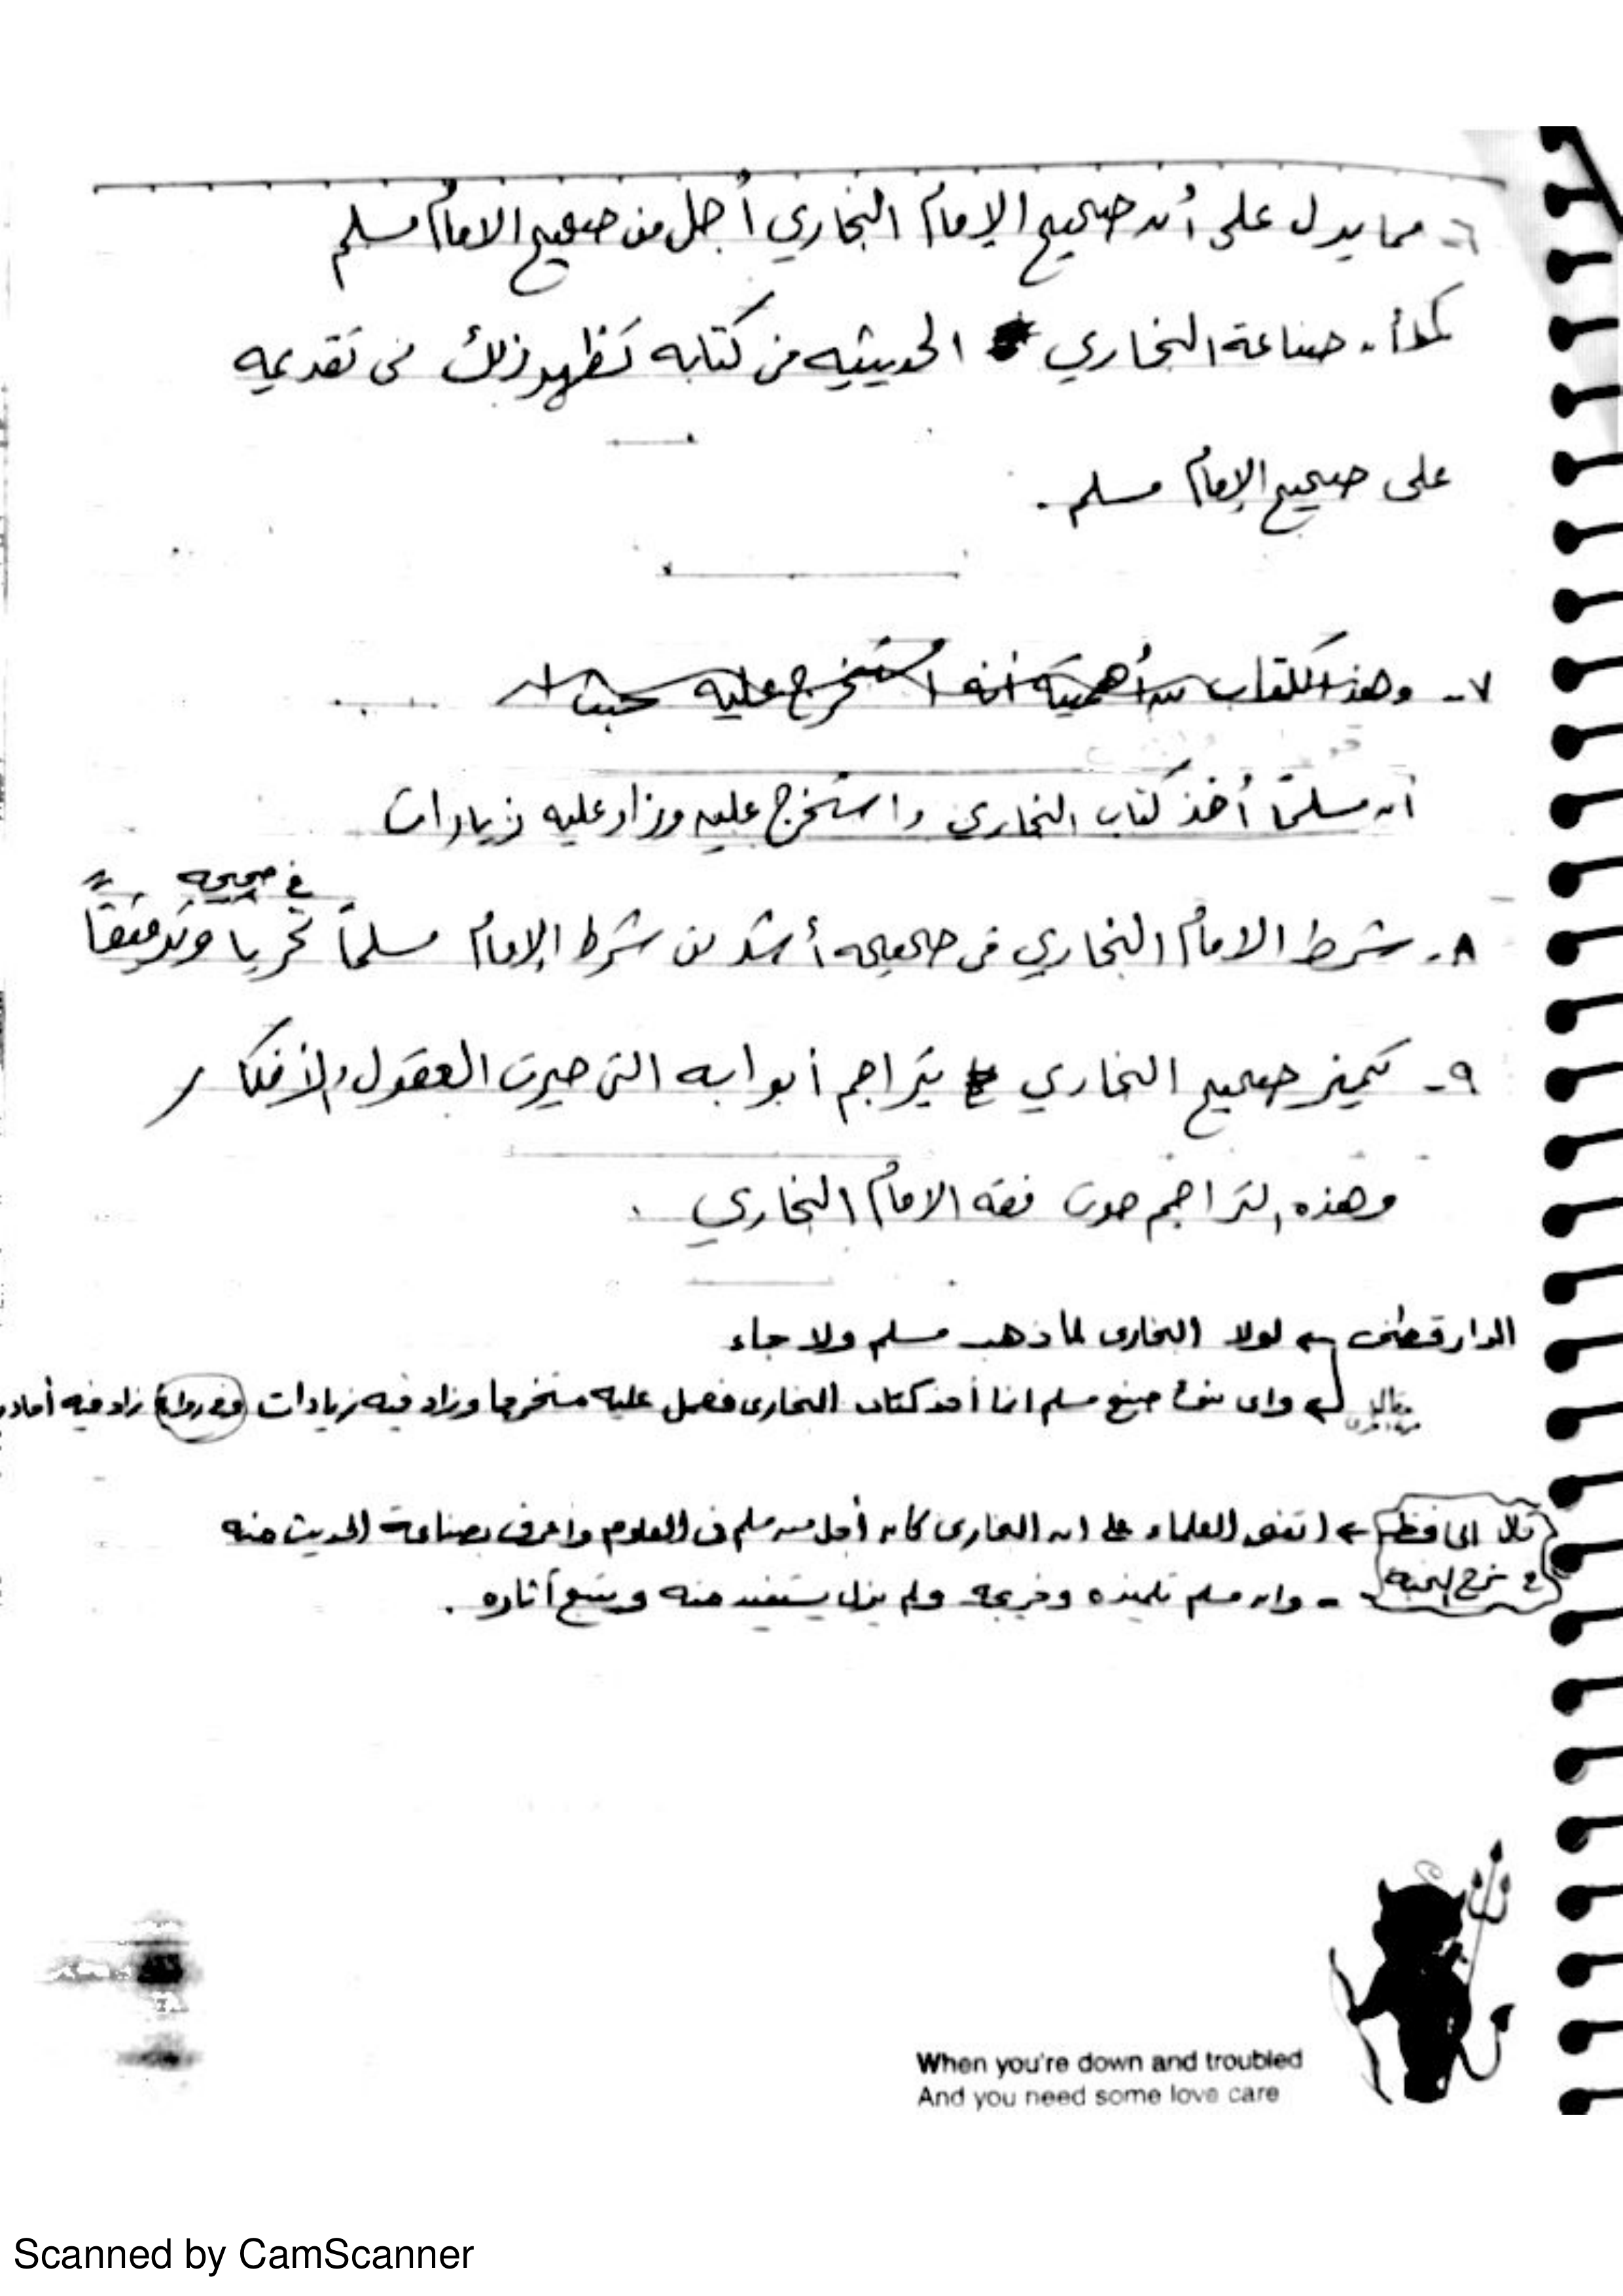 ٦- مما يدل على أن صحيح الإمام البخاري أجل من صحيح الامام مسلم
صناعة البخاري الحديثيه من كتابه تظهر ذلك فى تقديمه
على صحيح الإمام مسلم .
٧- وهذ الكتاب من أهميته أنه استخرج عليه
أن مسلمًا أخذ كتاب البخاري واستخرج عليه وزاد عليه زيادات
في صحيحه
٨- شرط الامام البخاري فى صحيحه أشد من شرط الإمام مسلمًا تحريا وتدقيقًا
٩- تميز صحيح البخاري بتراجم أبوابه التى حيرت العقول والأفكار
وهذه التراجم حوت فقه الامام البخاري .
الدارقطنى ← لولا البخارى لما ذهب مسلم ولا جاء
← واى شئ صنع مسلم انما أخذ كتاب البخارى فعمل عليه مستخرجا وزاد فيه زيادات (وفى رواية) زاد فيه
قال الحافظ ← اتفق العلماء على ان البخارى كان أجل من مسلم فى العلوم واعرف بصناعة الحديث منه
فى شرح النخبة - وان مسلم تلميذه وخريجه ولم يزل يستفيد منه ويتتبع آثاره .
When you're down and troubled
And you need some love care
Scanned by CamScanner